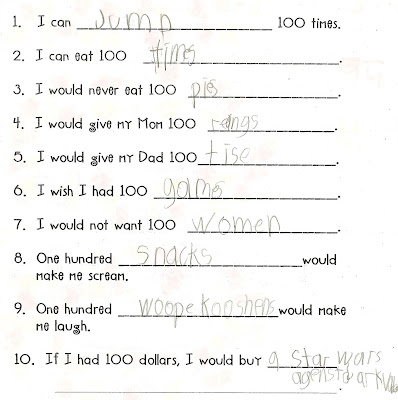 1. I can Jump 100 times.
2. I can eat 100 times.
3. I would never eat 100 pies.
4. I would give my Mom 100 rengs.
5. I would give my Dad 100 tise.
6. I wish I had 100 games.
7. I would not want 100 women.
8. One hundred snacks would
make me scream.
9. One hundred woope kooshens would make
me laugh.
10. If I had 100 dollars, I would buy a Star wars